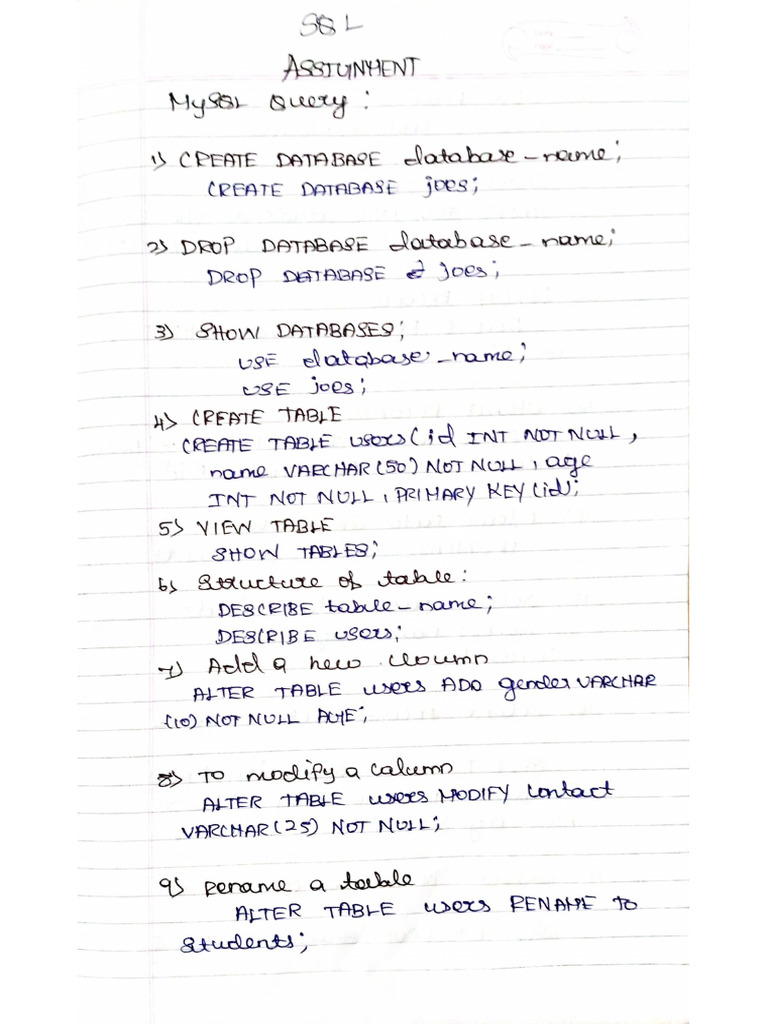 SQL
ASSIGNMENT
MySQL Query :
1) CREATE DATABASE database_name;
CREATE DATABASE joes;
2) DROP DATABASE database_name;
DROP DATABASE joes;
3) SHOW DATABASES;
USE database_name;
USE joes;
4) CREATE TABLE
CREATE TABLE users(id INT NOT NULL,
name VARCHAR(50) NOT NULL, age
INT NOT NULL, PRIMARY KEY (id);
5) VIEW TABLE
SHOW TABLES;
6) Structure of table:
DESCRIBE table_name;
DESCRIBE users;
7) Add a new cloumn
ALTER TABLE users ADD gender VARCHAR
(10) NOT NULL AGE;
8) TO modify a calumn
ALTER TABLE users MODIFY contact
VARCHAR(25) NOT NULL;
9) rename a table
ALTER TABLE users RENAME to
students;